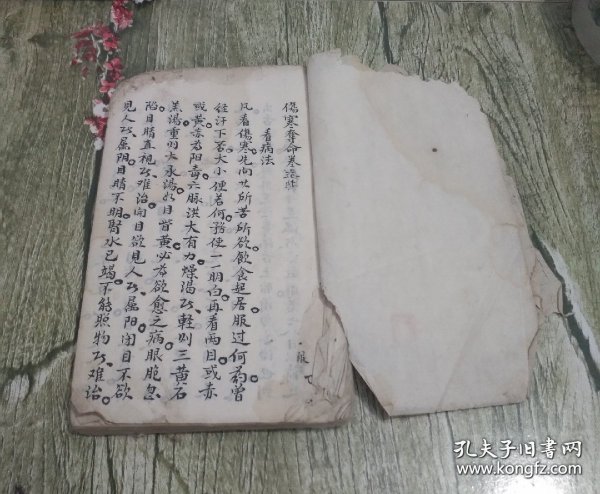 傷寒奪命
看病法
凡看傷寒先問其所苦所欲飲食起居服过何药曾
經汗下否大小便若何務使一一明白再看两目或赤
或黄赤者阳毒六脉洪大有力燥渴攻輕则三黄石
羔湯重则大承湯如目眥黄必為欲愈之病眼胞忽
陷目睛直視攻难治闭目欲見人攻属阳闭目不欲
見人攻属阴目睛不明腎水已竭不能照物攻难治
孔夫子旧书网
www.kongfz.com